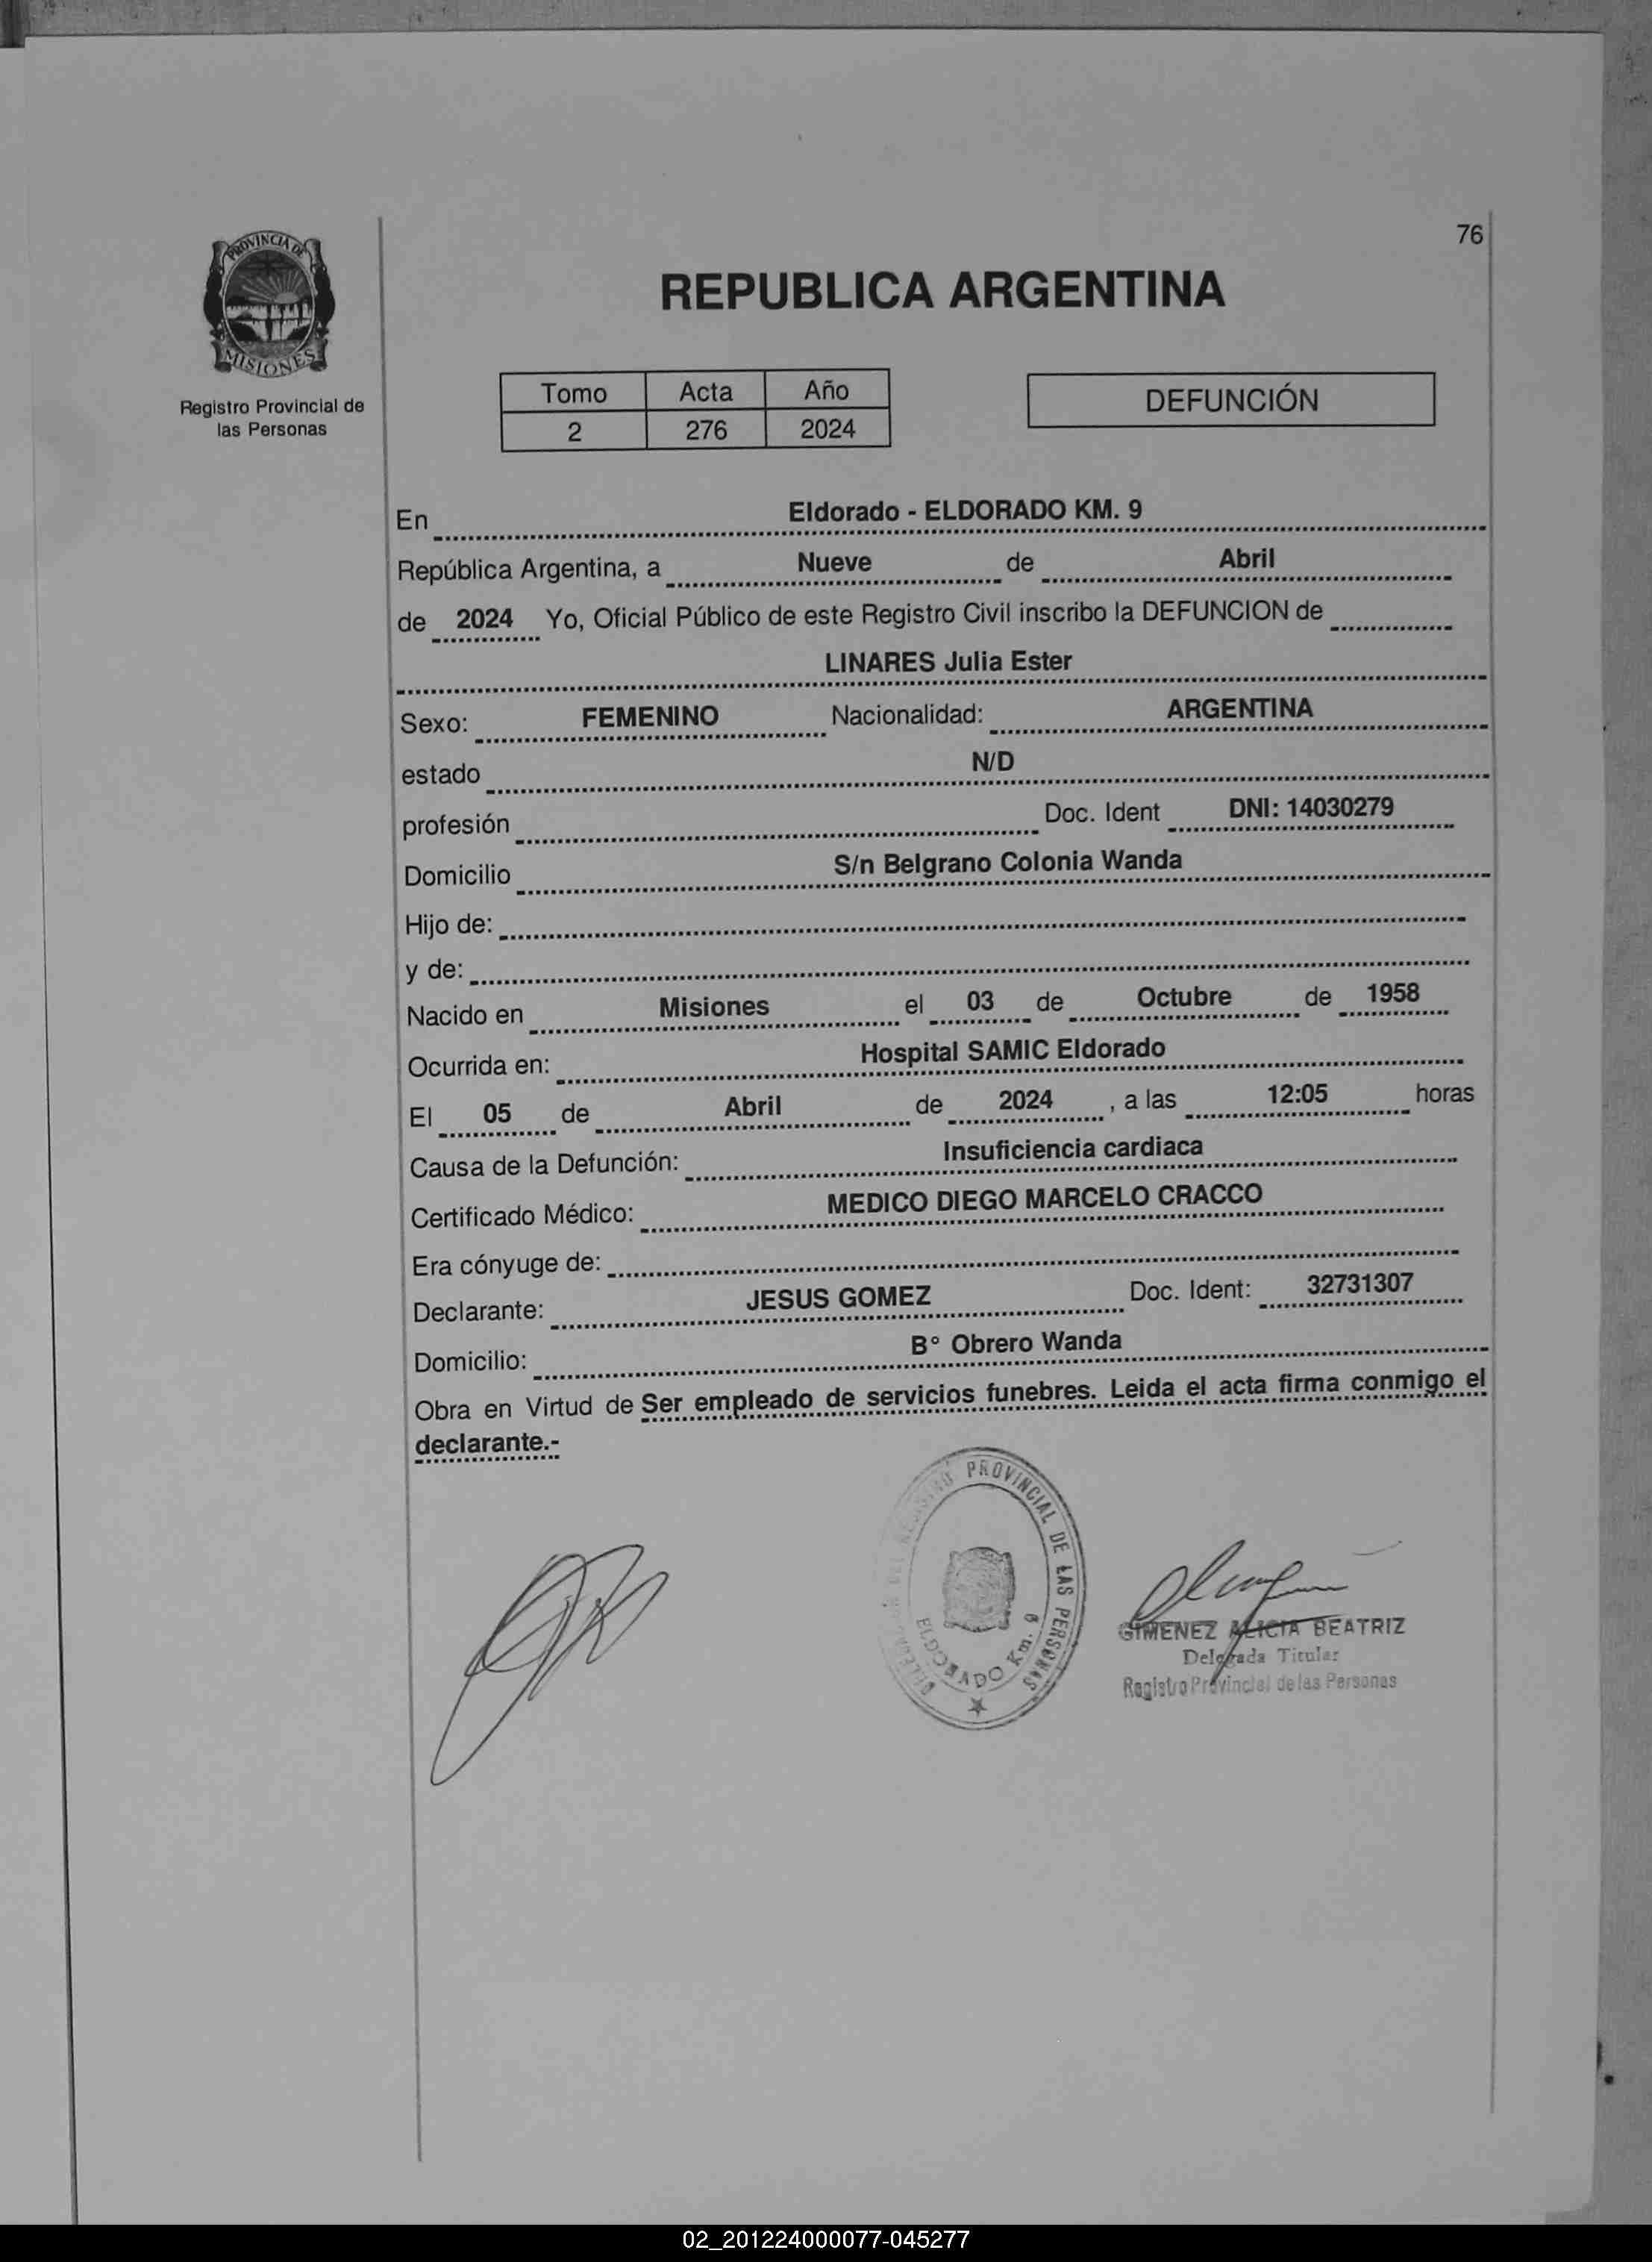 76
PROVINCIA DE
MISIONES
Registro Provincial de
las Personas
REPUBLICA ARGENTINA
Tomo Acta Año
2 276 2024
DEFUNCIÓN
En Eldorado - ELDORADO KM. 9
República Argentina, a Nueve de Abril
de 2024 Yo, Oficial Público de este Registro Civil inscribo la DEFUNCION de
LINARES Julia Ester
Sexo: FEMENINO Nacionalidad: ARGENTINA
estado N/D
profesión Doc. Ident DNI: 14030279
Domicilio S/n Belgrano Colonia Wanda
Hijo de:
y de:
Nacido en Misiones el 03 de Octubre de 1958
Ocurrida en: Hospital SAMIC Eldorado
El 05 de Abril de 2024 , a las 12:05 horas
Causa de la Defunción: Insuficiencia cardiaca
Certificado Médico: MEDICO DIEGO MARCELO CRACCO
Era cónyuge de:
Declarante: JESUS GOMEZ Doc. Ident: 32731307
Domicilio: B° Obrero Wanda
Obra en Virtud de Ser empleado de servicios funebres. Leida el acta firma conmigo el
declarante.-
PROVINCIAL DE LAS PERSONAS
ELDORADO Km. 9
GIMENEZ ALICIA BEATRIZ
Delegada Titular
Registro Provincial de las Personas
02_201224000077-045277